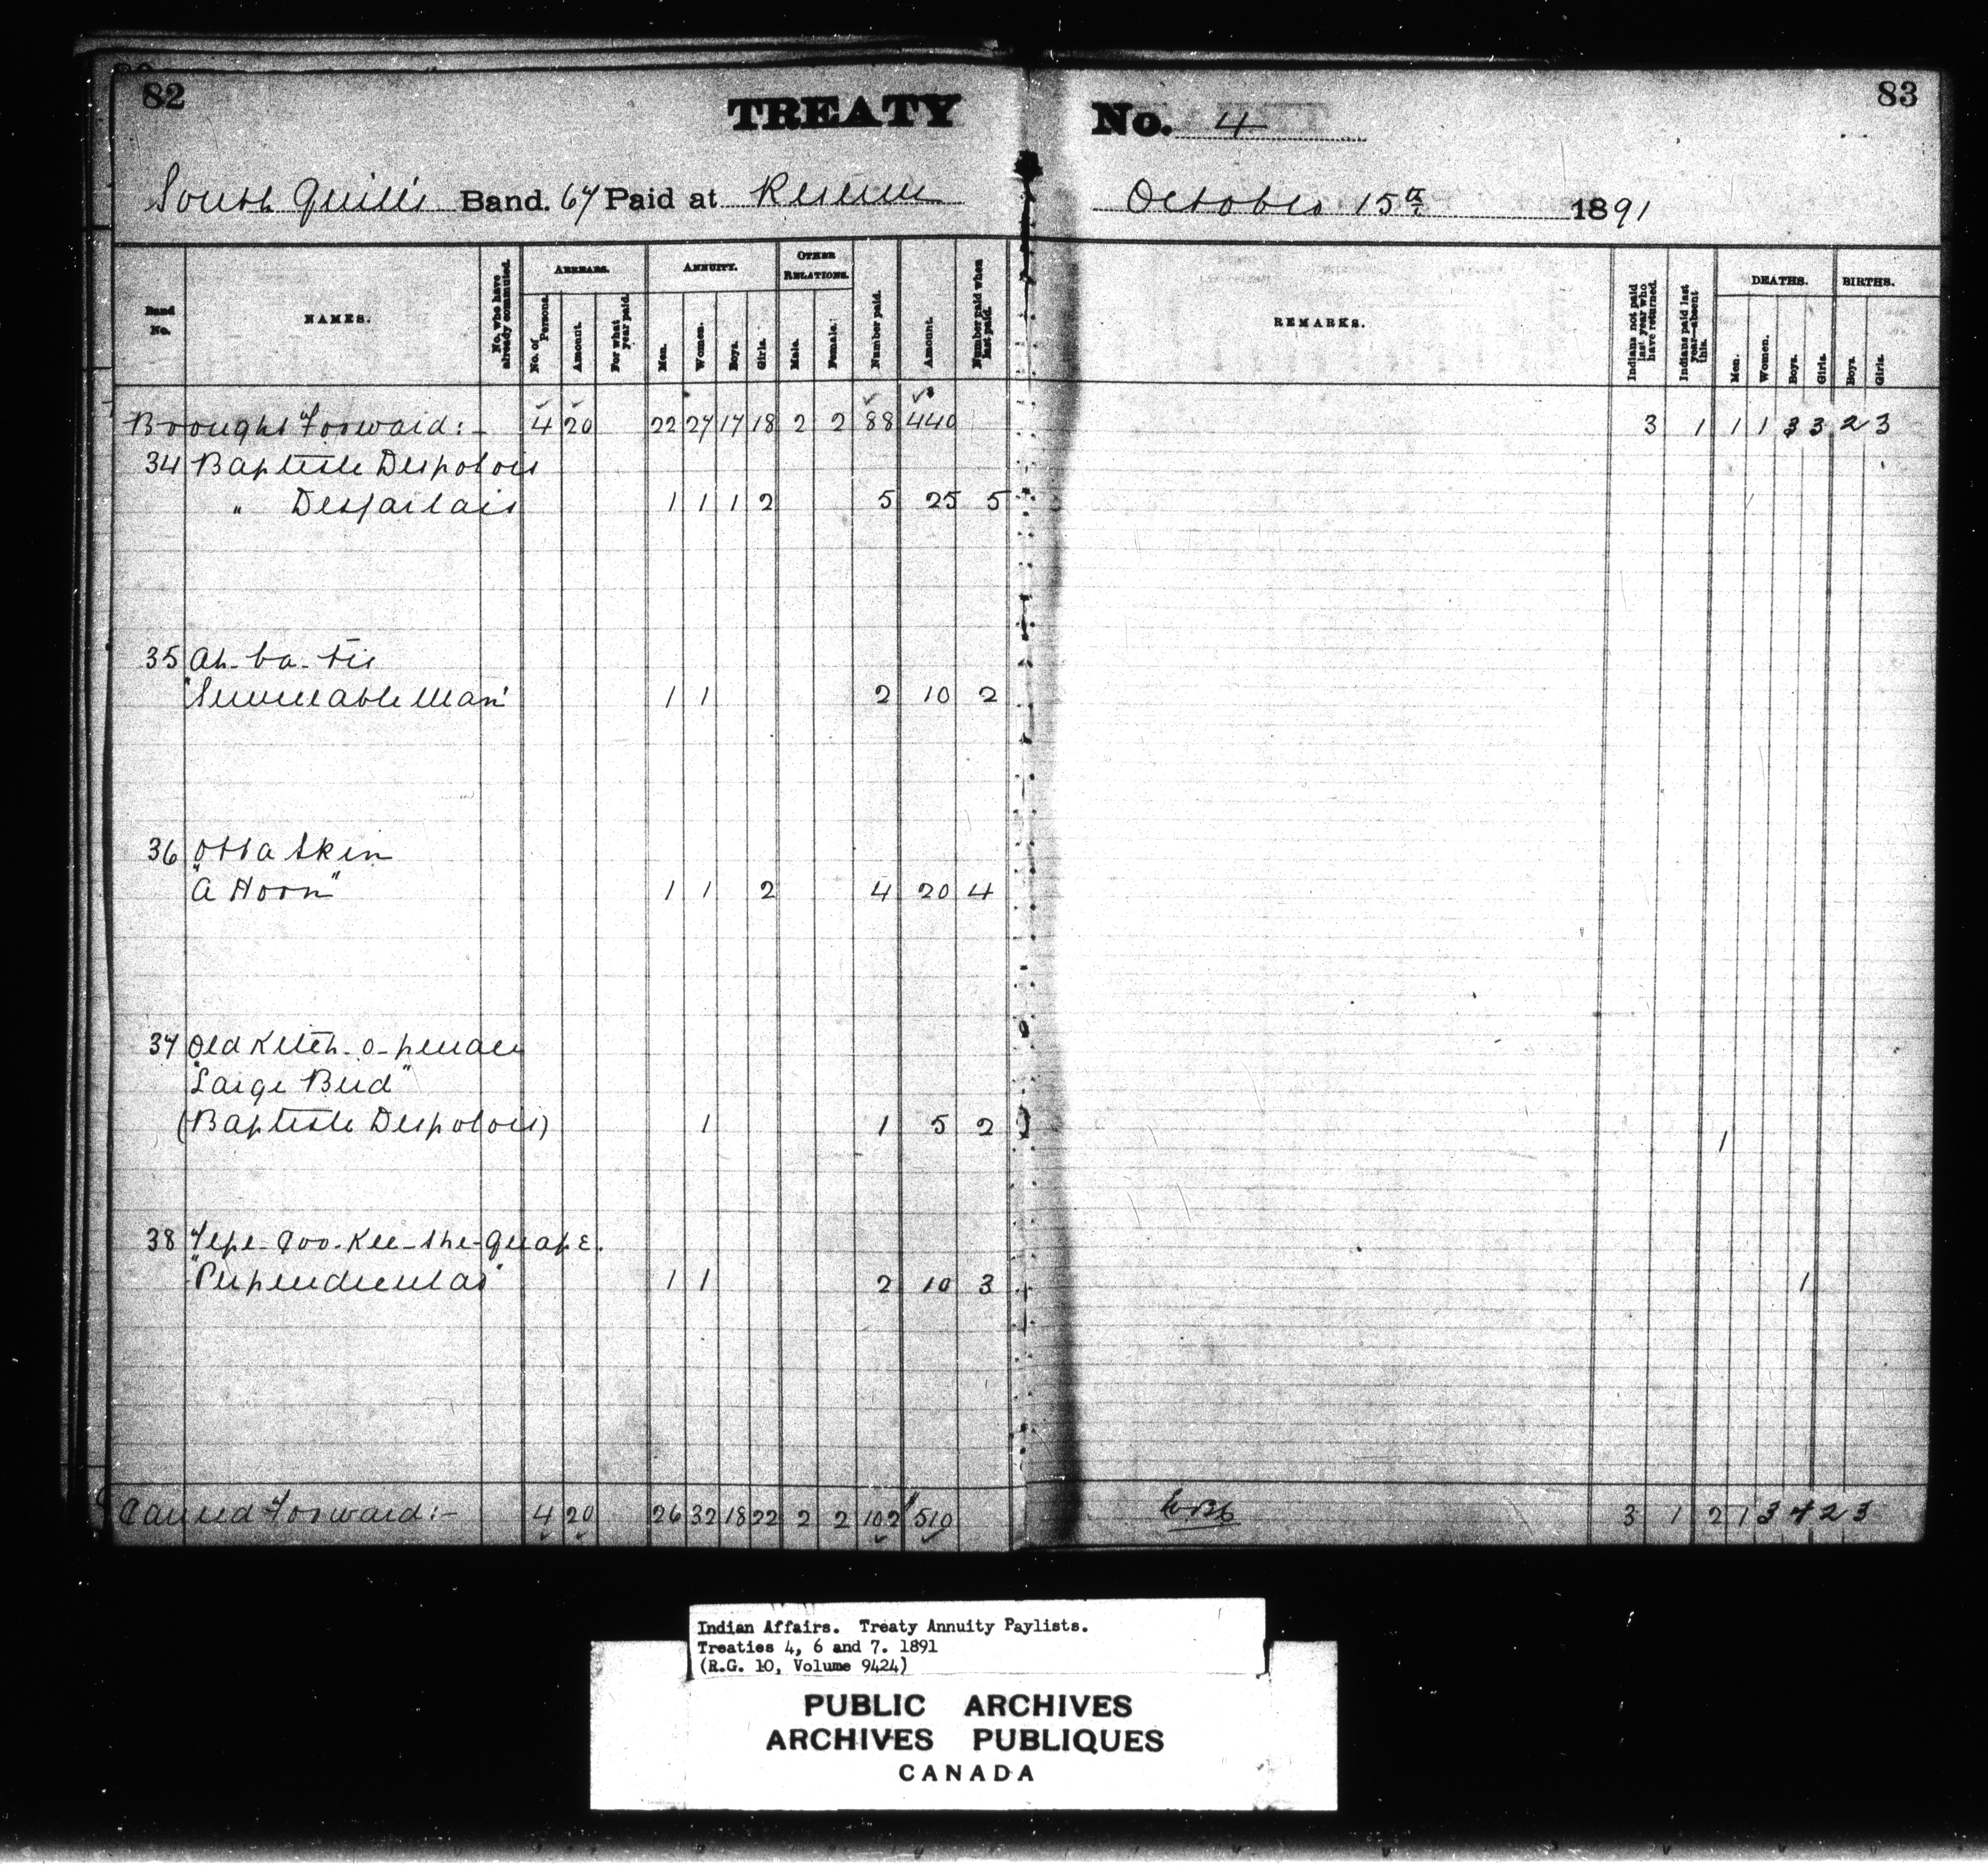 82
TREATY
No. 4
83
South Quill's Band. 67 Paid at Reserve
October 15th 1891
Band No.
NAMES.
No. who have already commuted.
ARREARS.
No. of Persons.
Amount.
For what year paid.
ANNUITY.
Men.
Women.
Boys.
Girls.
OTHER RELATIONS.
Male.
Female.
Number paid.
Amount.
Number paid when last paid.
REMARKS.
Indians not paid last year who have returned.
Indians paid last year—absent this.
DEATHS.
Men.
Women.
Boys.
Girls.
BIRTHS.
Boys.
Girls.
Brought Forward:- 4 20 22 27 17 18 2 2 88 440 3 1 1 1 3 3 2 3
34 Baptiste Despolois
" Desjarlais 1 1 1 2 5 25 5
35 Ah-ba-tis
"Serviceable Man" 1 1 2 10 2
36 Otta Skin
"A Horn" 1 1 2 4 20 4
37 Old Kitch-o-penace
"Large Bird"
(Baptiste Despolois) 1 1 5 2 1
38 Tepe-qoo-kee-she-quape.
"Perpendicular" 1 1 2 10 3 1
Carried Forward:- 4 20 26 32 18 22 2 2 102 $510 3 1 2 1 3 4 2 3
Indian Affairs. Treaty Annuity Paylists.
Treaties 4, 6 and 7. 1891
(R.G. 10, Volume 9424)
PUBLIC ARCHIVES
ARCHIVES PUBLIQUES
CANADA